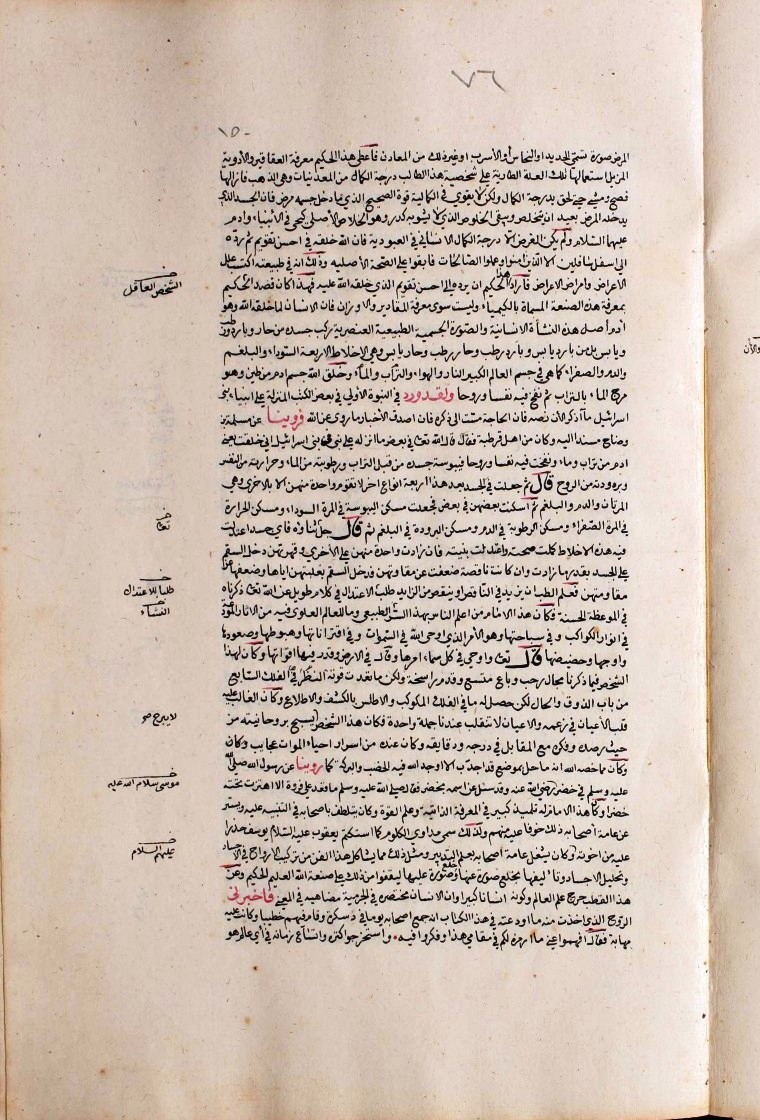 ٧٦
١٥٠
المرض صورة تسمى الحديد او النحاس أو الأسرب او غير ذلك من المعادن فأعطى هذا الحكيم معرفة العقاقير والأدوية
المزيل استعمالها تلك العلة الطارية على شخصية هذا الطالب درجة الكمال من المعدنيات وهي الذهب فأزالها
فصح ومشى حتى لحق بدرجة الكمال ولكن لا يقوى في الكمالية قوة الصحيح الذي ما دخل جسمه مرض فان الجسد الذي
يدخله المرض بعيد ان يتخلص وينقى الخلوص الذي لا يشوبه كدر وهو الخلاص الأصلي كيحيى في الأنبياء وادم
عليهما السلام ولم يكن الغرض الا درجة الكمال الانساني في العبودية فان الله خلقه في احسن تقويم ثم رده
الى اسفل سافلين الا الذين امنوا وعملوا الصالحات فأبقوا على الصحة الأصليه وذلك انه في طبيعته اكتسب علل
الاعراض وامراض الاعراض فأراد هذا الحكيم ان يرده الى احسن تقويم الذي خلقه الله عليه فهذا كان قصد الحكيم
الشخص العاقل
بمعرفة هذه الصنعة المسماة بالكيمياء وليست سوى معرفة المقادير والاوزان فان الانسان لما خلقه الله وهو
آدم أصل هذه النشأة الانسانية والصورة الجسمية الطبيعية العنصرية ركب جسده من حار وبارد ورطب
ويابس بل من بارد يابس وبارد رطب وحار رطب وحار يابس وهي الاخلاط الاربعة السوداء والبلغم
والدم والصفراء كما هي في جسم العالم الكبير النار والهواء والتراب والماء وخلق الله جسم ادم من طين وهو
مزج الماء بالتراب ثم نفخ فيه نفسا وروحا ولقد ورد في النبوة الأولى في بعض الكتب المنزلة على انبياء بني
اسرائيل ما أذكر الآن نصه فان الحاجة مست الى ذكره فان اصدق الأخبار ما روي عن الله فروينا عن مسلمة بن
وضاح مسندا اليه وكان من اهل قرطبة فقال قال الله تعالى في بعض ما انزله على بني اسرائيل اني خلقت يعني
ادم من تراب وماء ونفخت فيه نفسا وروحا فيبوسة جسده من قبل التراب ورطوبته من الماء وحرارته من النفس
وبرودته من الروح قال ثم جعلت في الجسد بعد هذا اربعة انواع اخر لا تقوم واحدة منهن الا بالاخرى وهي
المرتان والدم والبلغم ثم اسكنت بعضهن في بعض فجعلت مسكن اليبوسة في المرة السوداء ومسكن الحرارة
في المرة الصفراء ومسكن الرطوبة في الدم ومسكن البرودة في البلغم ثم قال جل ثناؤه فاي جسد اعتدلت
تعالى
فيه هذه الاخلاط كملت صحته واعتدلت بنيته فان زادت واحدة منهن على الأخرى وقهرتهن دخل السقم
على الجسد بقدر ما زادت وان كانت ناقصة ضعفت عن مقاومتهن فدخل السقم بغلبتهن اياها وضعفها عن
مقاومتهن فعلم الطب ان يزيد في الناقص او ينقص من الزايد طلب الاعتدال في كلام طويل عن الله تعالى ذكرناه
طلبا للاعتدال
في الموعظة الحسنة فكان هذا الامام من اعلم الناس بهذا النشء الطبيعي وما للعالم العلوي فيه من الاثار المودعة
النشاء
في انوار الكواكب وفي سباحتها وهو الأمر الذي اوحى الله في السموات وفي اقتراناتها وهبوطها وصعودها
واوجها وحضيضها قال تعالى واوحى في كل سماء امرها وقال في الارض وقدر فيها اقواتها وكان لهذا
الشخص فيما ذكرناه مجال رحب وباع متسع وقدم راسخة ولكن ما تعدت قوته النظر في الفلك السابع
من باب الذوق والحال لكن حصل له ما في الفلك المكوكب والاطلس بالكشف والاطلاع وكان الغالب عليه
قلب الأعيان في زعمه والاعيان لا تنقلب عندنا جملة واحدة فكان هذا الشخص يسبح بروحانيته من
لا يبرح
حيث رصده وفكره مع المقابل في درجه ودقايقه وكان عنده من اسرار احياء الموات عجايب وكان
وكان مما خصه الله انه ما حل بموضع قد اجدب الا اوجد الله فيه الخصب والبركة كما روينا عن رسول الله صلى الله
عليه وسلم في خضر رضي الله عنه وقد سئل عن اسمه بخضر فقال صلى الله عليه وسلم ما قعد على فروة الا اهتزت تحته
موسى سلام الله عليه
خضرا وكان هذا الامام له تلميذ كبير في المعرفة الذاتية وعلم القوة وكان يتلطف باصحابه في التنبيه عليه ويستر
عن عامة اصحابه ذلك خوفا عليه منهم ولذلك سمي مداوي الكلوم كما استكتم يعقوب عليه السلام يوسف حذرا
عليه من اخوته وكان يشغل عامة اصحابه بعلم التدبير ومثل ذلك مما يشاكل هذا الفن من تركيب الأرواح في الاجساد
عليهم السلام
وتحليل الاجساد وتأليفها بخلع صورة عنها وخلع صورة عليها ليقفوا من ذلك على صنعة الله العليم الحكيم وعن
هذا القطب خرج علم العالم وكونه انسانا كبيرا وان الانسان مختصره في الجرمية مضاهيه في المعنى فأخبرني
الروح الذي اخذت منه ما اودعته في هذا الكتاب انه جمع اصحابه يوما في دسكرة وقام فيهم خطيبا وكانت عليه
مهابة فقال افهموا عني ما ارمزه لكم في مقامي هذا وفكروا فيه واستخرجوا كنزه واتساع زمانه في أي عالم هو